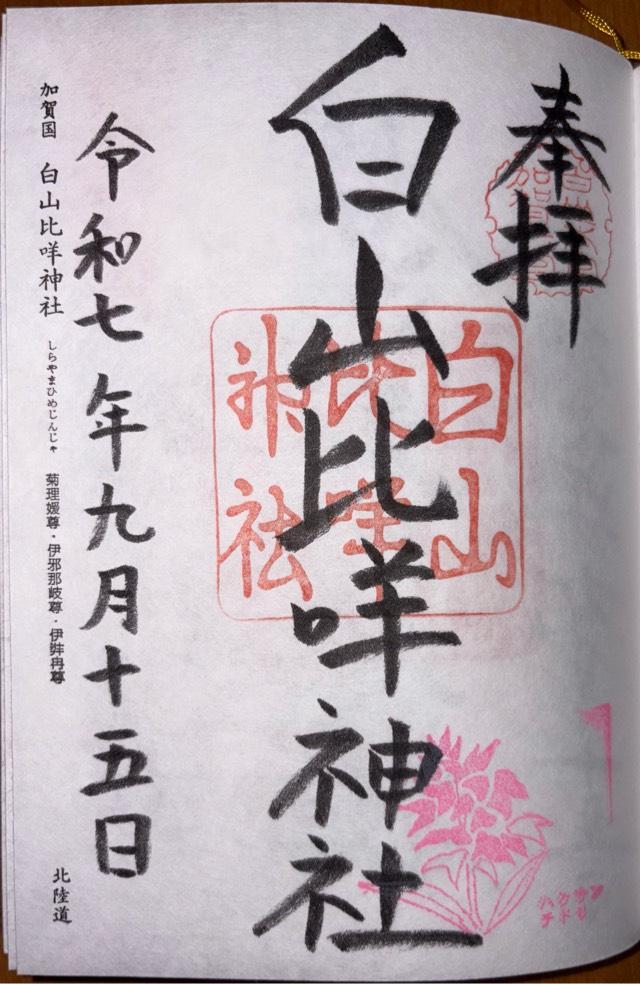 奉拝
白山比咩神社
白山
比咩
神社
令和七年九月十五日
加賀国 白山比咩神社 しらやまひめじんじゃ 菊理媛尊・伊邪那岐尊・伊弉冉尊
北陸道
ハクサン
チドリ